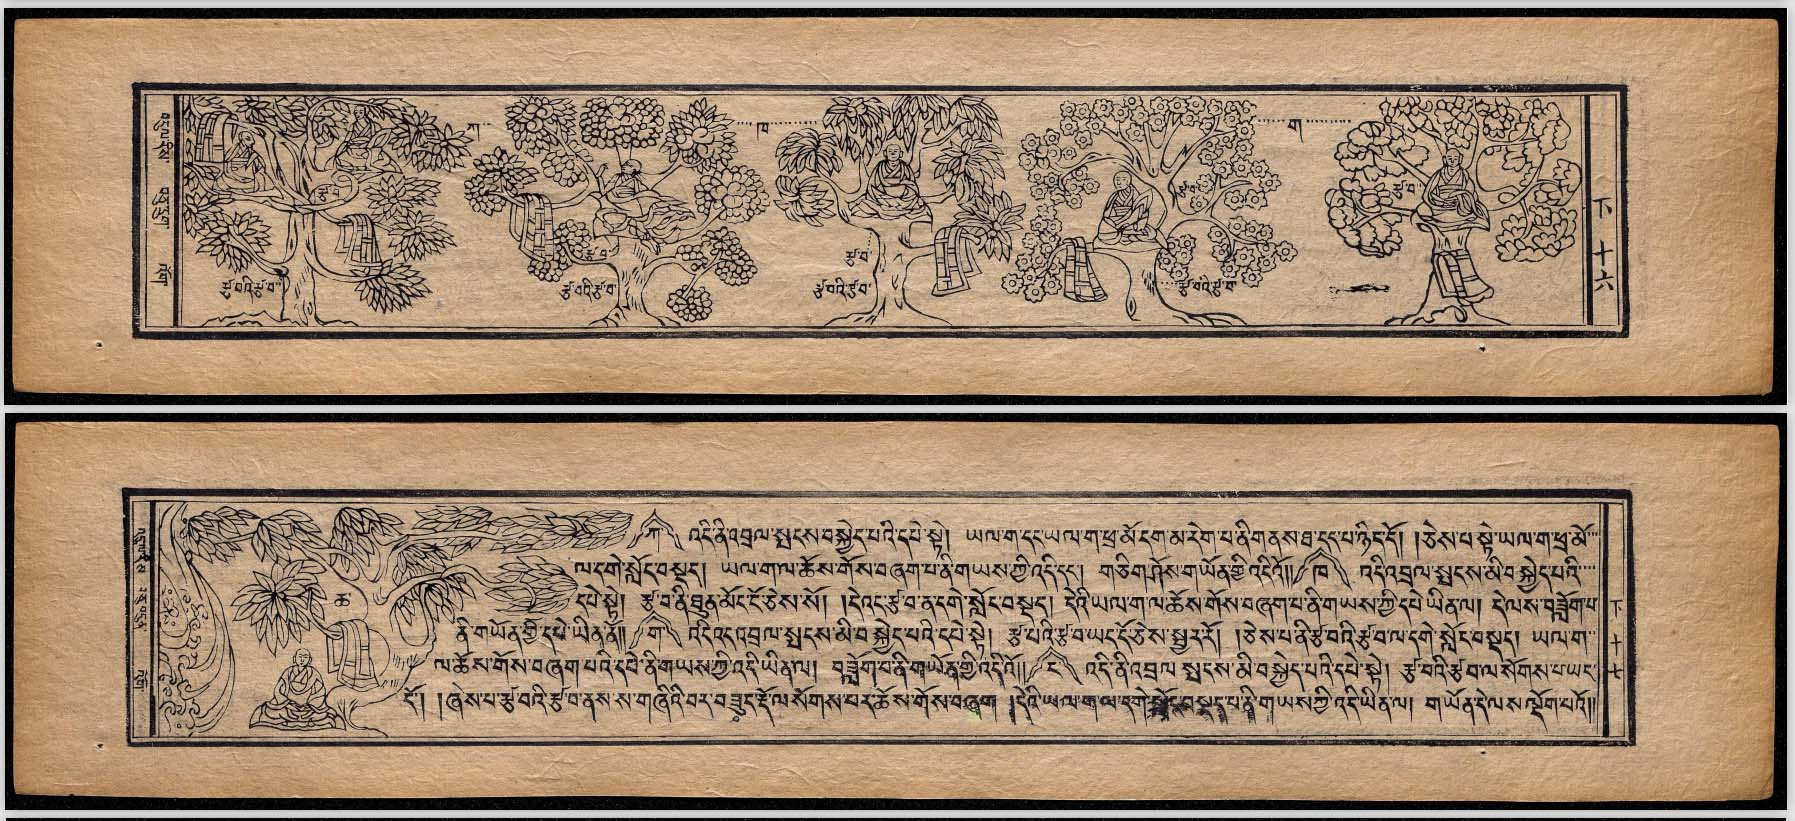 ཀ
ཁ
ག
རྩ་བ
རྩ་བ
རྩ་བ
རྩ་བ
རྩ་བའི་རྩ་བ
རྩ་བའི་རྩ་བ
རྩ་བའི་རྩ་བ
རྩ་བའི་རྩ་བ
下 十六
ཀ འདི་ནི་འབྲལ་སྤངས་བསྐྱེད་པའི་དཔེ་སྟེ། ཡལ་ག་དང་ཡལ་ག་ཕྲ་མོ་དག་མ་རེག་པ་ནི་གནས་ཐ་དད་པ་ཉིད་དོ། །ཅེས་པ་སྟེ་ཡལ་ག་ཕྲ་མོ
ལ་དགེ་སློང་བསྡད། ཡལ་ག་ལ་ཆོས་གོས་བཞག་པ་ནི་གཡས་ཀྱི་འདི་དང་། གཅིག་ཤོས་གཡོན་གྱི་འདིའོ།། ཁ འདི་འབྲལ་སྤངས་མི་བསྐྱེད་པའི
དཔེ་སྟེ། རྩ་བ་ནི་ཐུན་མོང་ངོ་ཅེས་སོ། །དེའང་རྩ་བ་ན་དགེ་སློང་བསྡད། དེའི་ཡལ་ག་ལ་ཆོས་གོས་བཞག་པ་ནི་གཡས་ཀྱི་དཔེ་ཡིན་ལ། དེ་ལས་བཟློག་པ
ནི་གཡོན་གྱི་དཔེ་ཡིན་ནོ།། ག འདིའང་འབྲལ་སྤངས་མི་བསྐྱེད་པའི་དཔེ་སྟེ། རྩ་བའི་རྩ་བ་ཡང་ངོ་ཅེས་སྦྱར་རོ། །ཅེས་པ་ནི་རྩ་བའི་རྩ་བ་ལ་དགེ་སློང་བསྡད། ཡལ་ག
ལ་ཆོས་གོས་བཞག་པའི་དཔེ་ནི་གཡས་ཀྱི་འདི་ཡིན་ལ། བཟློག་པ་ནི་གཡོན་གྱི་འདིའོ།། ང འདི་ནི་འབྲལ་སྤངས་མི་བསྐྱེད་པའི་དཔེ་སྟེ། རྩ་བའི་རྩ་བ་ལ་སོགས་པ་ཡང
ངོ། །ཞེས་པ་རྩ་བའི་རྩ་བ་ནས་ས་གཞིའི་བར་བཟུང་། སོགས་པར་ཆོས་གོས་བཞག །དེའི་ཡལ་ག་ལ་དགེ་སློང་བསྡད་པ་ནི་གཡས་ཀྱི་འདི་ཡིན་ལ། གཡོན་དེ་ལས་ལྡོག་པའོ།།
ཆ
下 十七